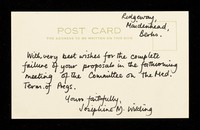 Ridgeway,
Maidenhead,
Berks.
POST CARD
THE ADDRESS TO BE WRITTEN ON THIS SIDE
With very best wishes for the complete
failure of your proposals in the forthcoming
meeting of the Committee on the Med.
Term. of Preg.
Yours faithfully,
Josephine M.